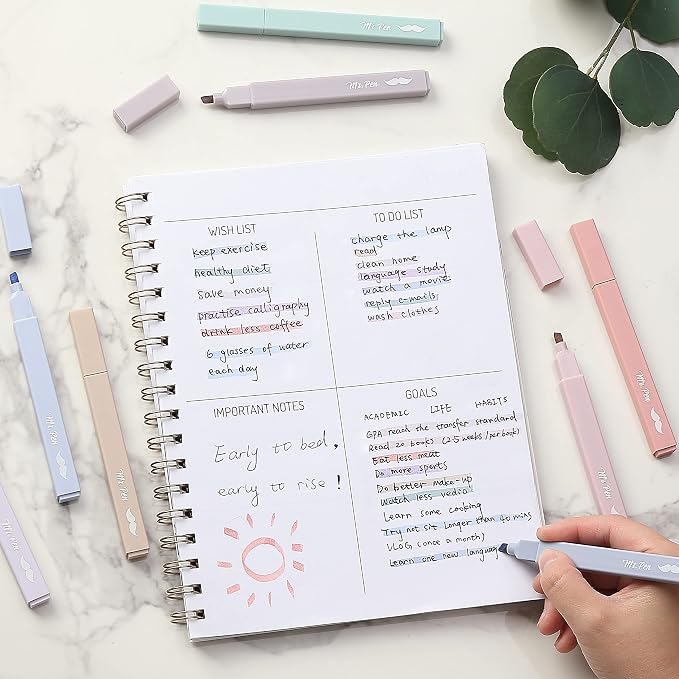 Mr. Pen
Mr. Pen
WISH LIST
keep exercise
healthy diet
save money
practise calligraphy
drink less coffee
6 glasses of water
each day
TO DO LIST
charge the lamp
read
clean home
language study
watch a movie
reply e-mails
wash clothes
IMPORTANT NOTES
Early to bed,
early to rise!
GOALS
ACADEMIC LIFE HABITS
GPA read the transfer standard
Read 20 books (2-5 weeks/per book)
Eat less meat
Do more sports
Do better make-up
Watch less vedio
Learn some cooking
Try not sit longer than 40 mins
VLOG (once a month)
Learn one new language
Mr. Pen
Mr. Pen
Mr. Pen
Mr. Pen
Mr. Pen
Mr. Pen